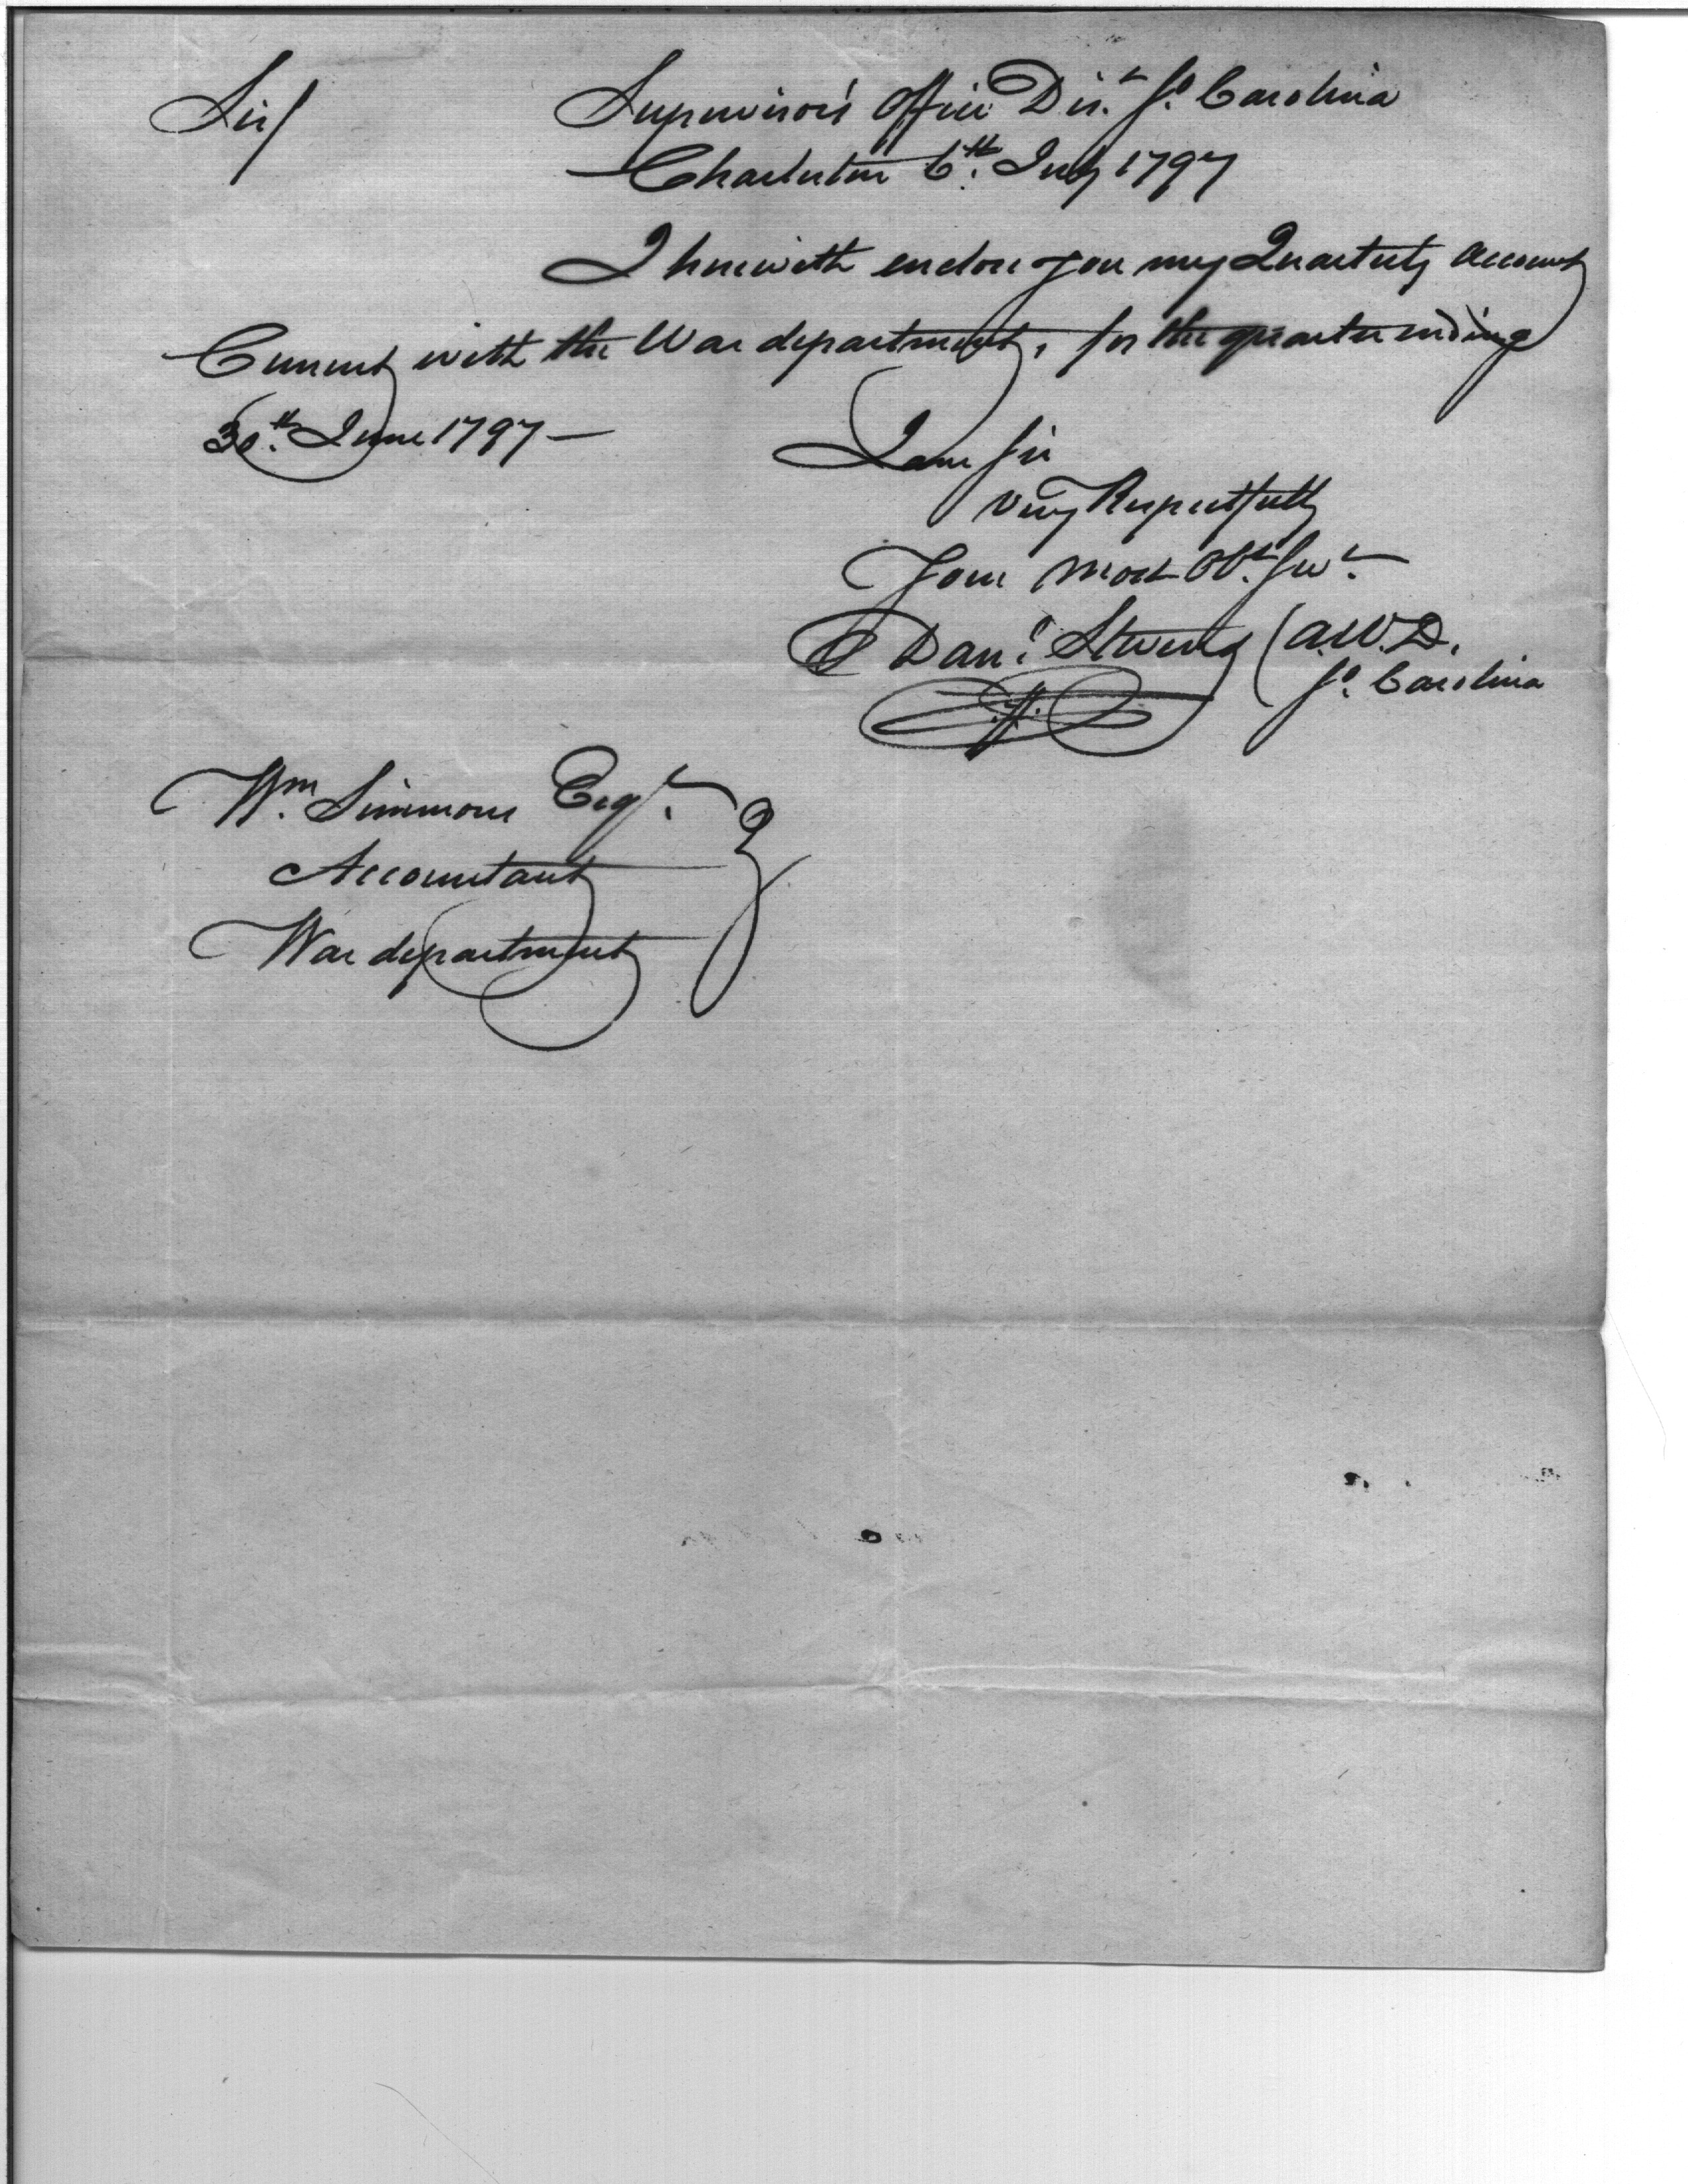 Sir/
Supervisor's Office Dis.t So. Carolina
Charleston 6.th July 1797
I herewith enclose you my Quarterly Account
Current with the War department, for the quarter ending
30.th June 1797 —
I am Sir
Very Respectfully
Your most Ob.t Serv.t
Dan.l Stevens (A.W.D.
So. Carolina
Wm. Simmons Esqr.
Accountant
War department